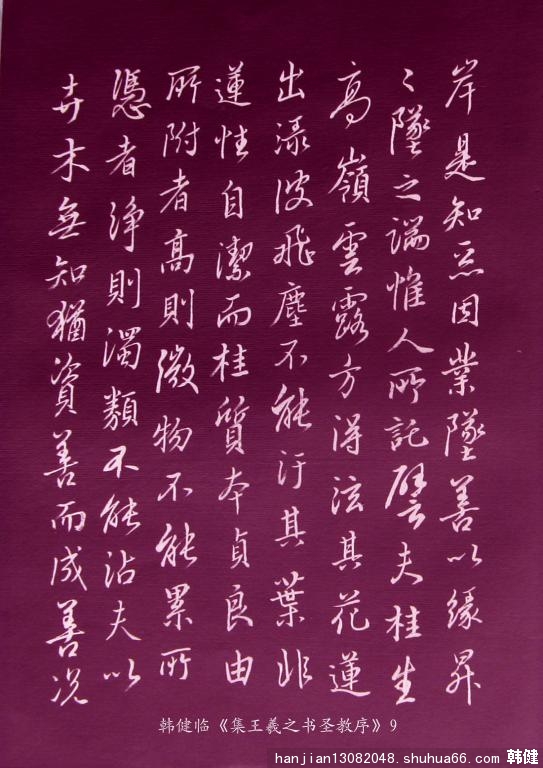 岸是知惡因業墜善以緣昇
〻墜之端惟人所託譬夫桂生
高嶺雲露方得泫其花蓮
出淥波飛塵不能汙其葉非
蓮性自潔而桂質本貞良由
所附者高則微物不能累所
憑者淨則濁類不能沾夫以
卉木無知猶資善而成善況
韩健临《集王羲之书圣教序》9
hanjian13082048.shuhua66.com 韩健